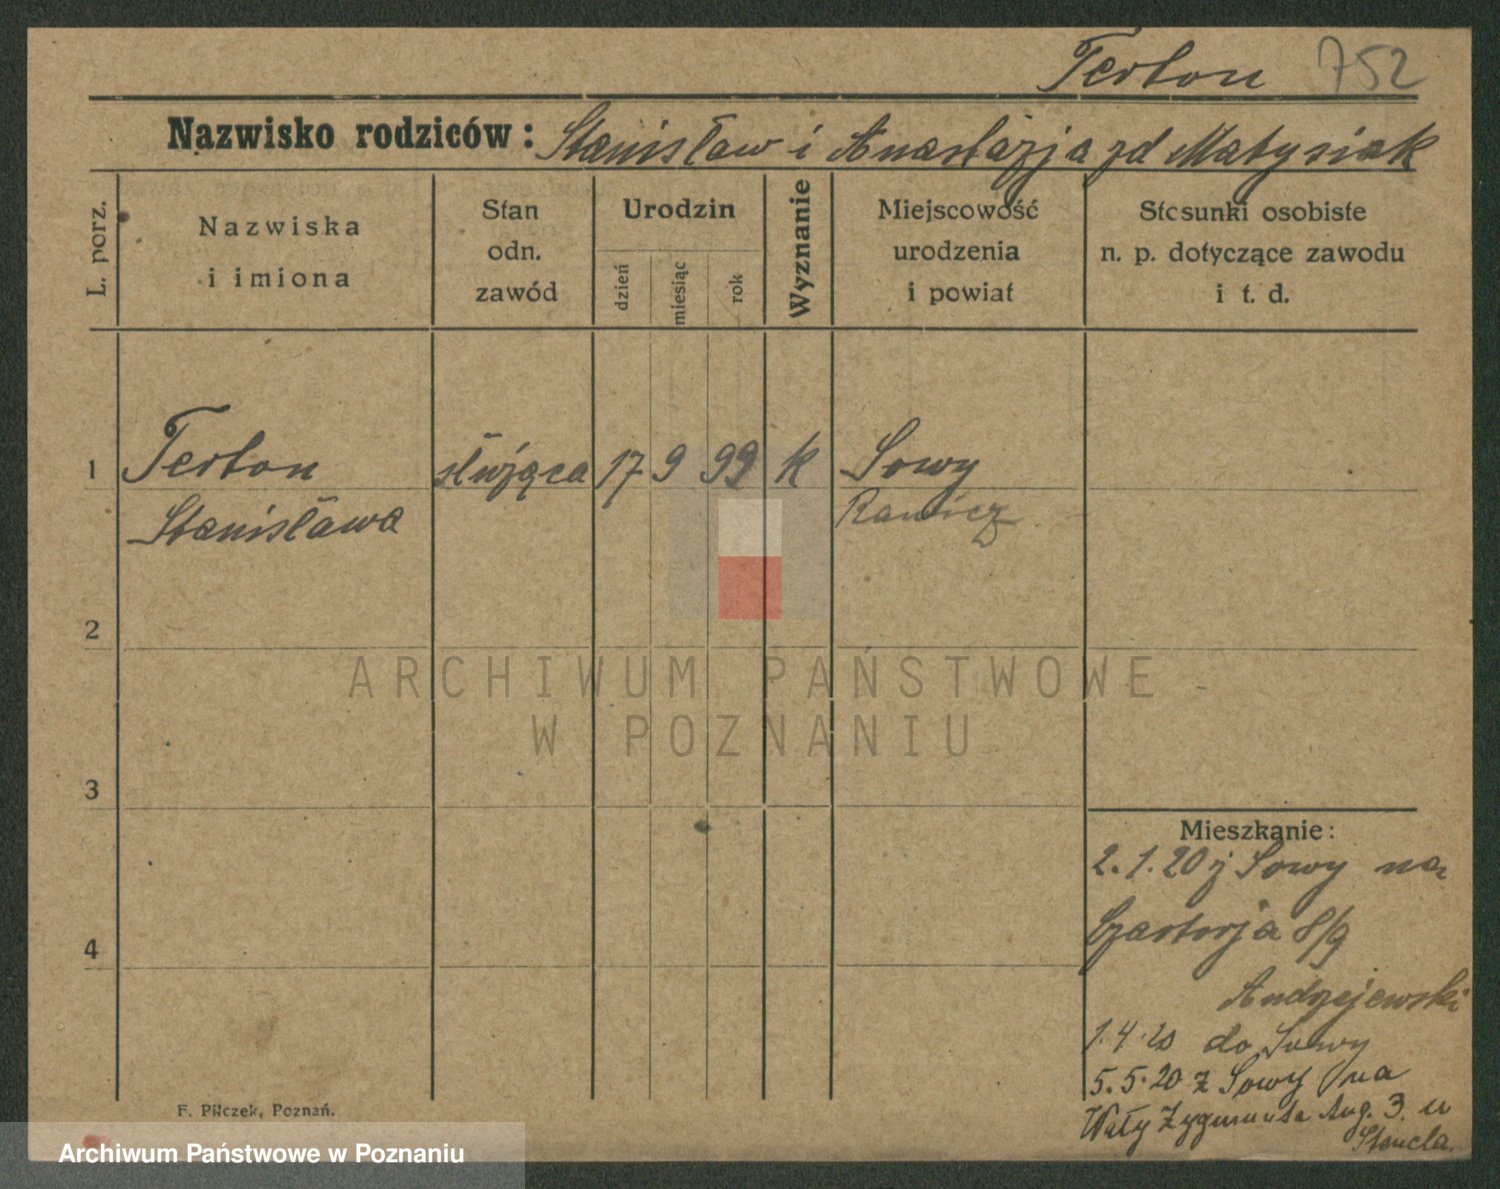 Terton 752
Nazwisko rodziców: Stanisław i Anastazja zd Matysiak
L. porz.
Nazwiska
i imiona
Stan
odn.
zawód
Urodzin
dzień
miesiąc
rok
Wyznanie
Miejscowość
urodzenia
i powiat
Stosunki osobiste
n. p. dotyczące zawodu
i t. d.
1 Terton służąca 17 9 99 k Sowy
Stanisława Rawicz
2
ARCHIWUM PAŃSTWOWE
W POZNANIU
3
Mieszkanie:
2.1.20 z Sowy na
Czartorja 8/9
4
Andrzejewski
1.4.20 do Sowy
5.5.20 z Sowy na
Wały Zygmunta Aug. 3. u
Stencla
F. Pilczek, Poznań.
Archiwum Państwowe w Poznaniu